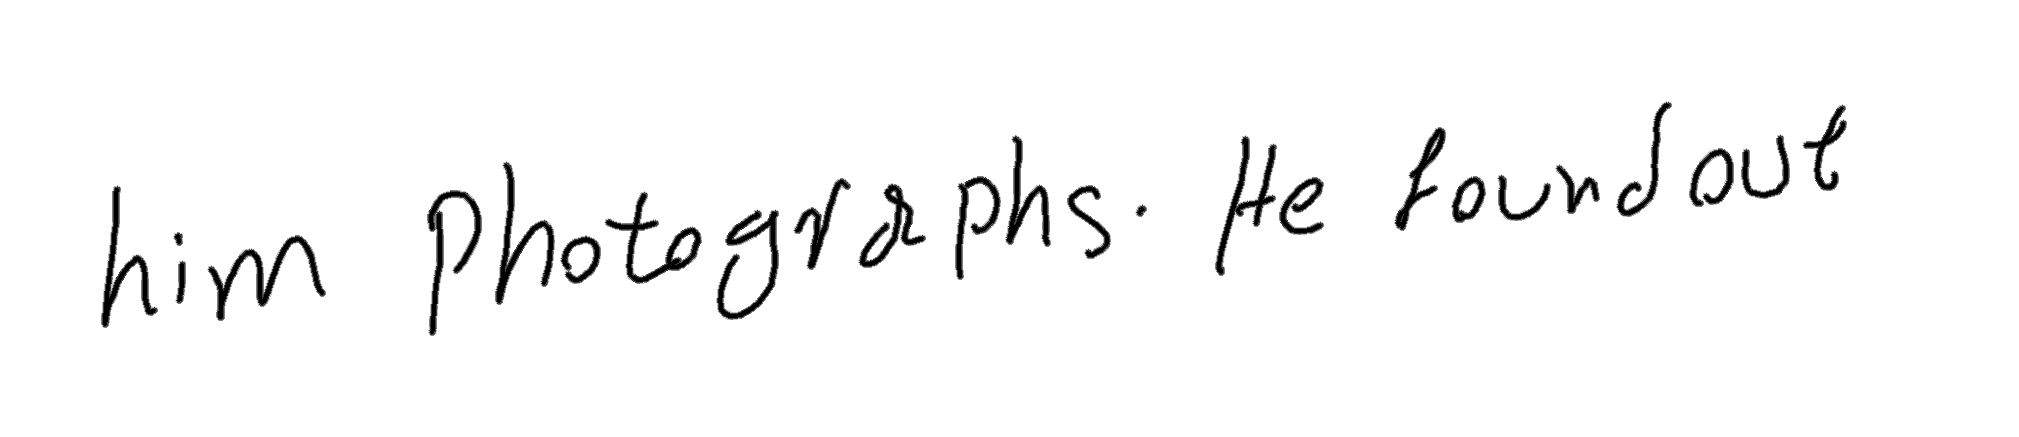 him photographs. He found out